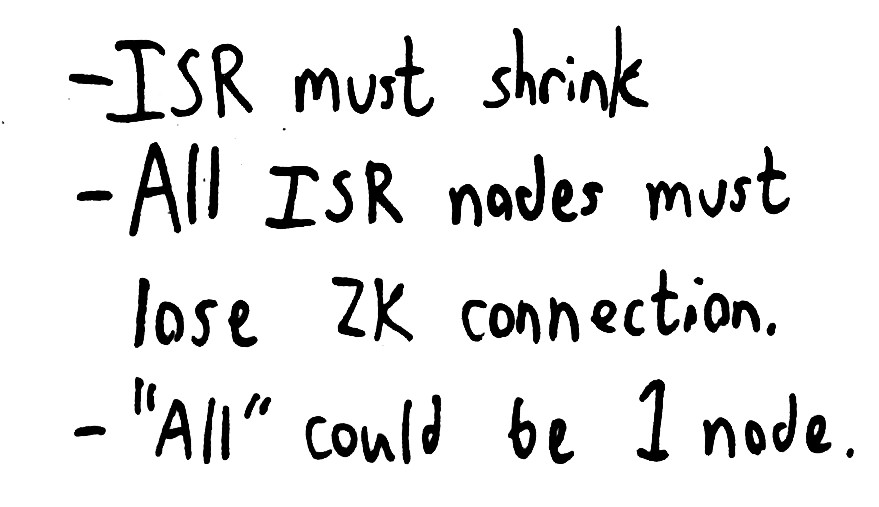 - ISR must shrink
- All ISR nodes must
lose ZK connection.
- "All" could be 1 node.